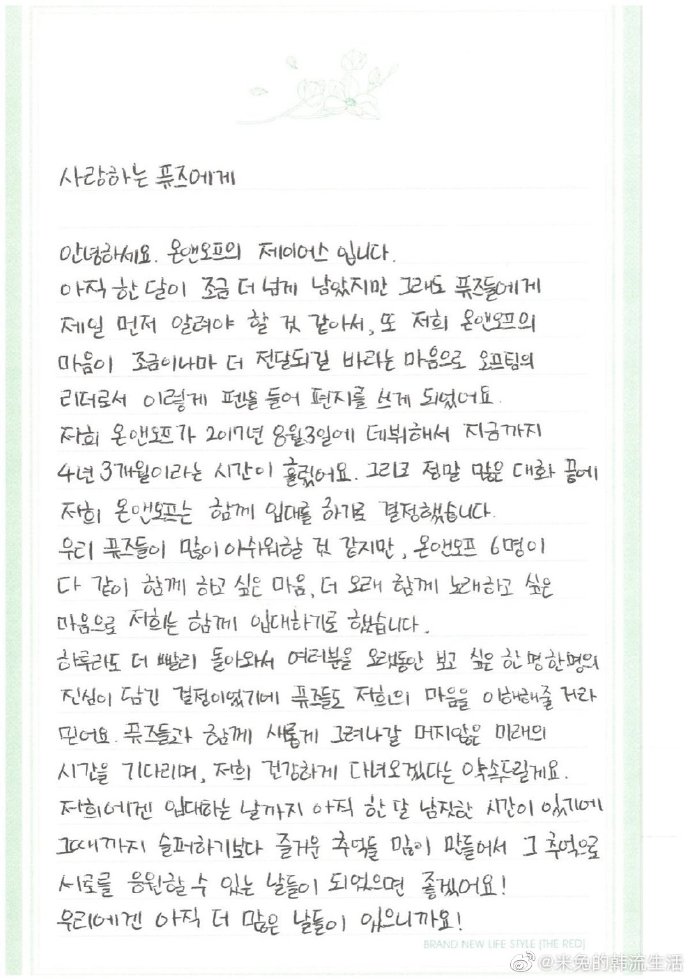 사랑하는 퓨즈에게
안녕하세요. 온앤오프의 제이어스 입니다.
아직 한 달이 조금 더 넘게 남았지만 그래도 퓨즈들에게
제일 먼저 알려야 할 것 같아서, 또 저희 온앤오프의
마음이 조금이나마 더 전달되길 바라는 마음으로 오프팀의
리더로서 이렇게 펜을 들어 편지를 쓰게 되었어요.
저희 온앤오프가 2017년 8월3일에 데뷔해서 지금까지
4년 3개월이라는 시간이 흘렀어요. 그리고 정말 많은 대화 끝에
저희 온앤오프는 함께 입대를 하기로 결정했습니다.
우리 퓨즈들이 많이 아쉬워할 것 같지만, 온앤오프 6명이
다 같이 함께 하고 싶은 마음, 더 오래 함께 노래하고 싶은
마음으로 저희는 함께 입대하기로 했습니다.
하루라도 더 빨리 돌아와서 여러분을 오랫동안 보고 싶은 한 명 한 명의
진심이 담긴 결정이었기에 퓨즈들도 저희의 마음을 이해해줄 거라
믿어요. 퓨즈들과 함께 새롭게 그려나갈 머지않은 미래의
시간을 기다리며, 저희 건강하게 다녀오겠다는 약속드릴게요.
저희에겐 입대하는 날까지 아직 한 달 남짓한 시간이 있기에
그때까지 슬퍼하기보다 즐거운 추억들 많이 만들어서 그 추억으로
서로를 응원할 수 있는 날들이 되었으면 좋겠어요!
우리에겐 아직 더 많은 날들이 있으니까요!
BRAND NEW LIFE STYLE [THE RED]
@米兔的韩流生活